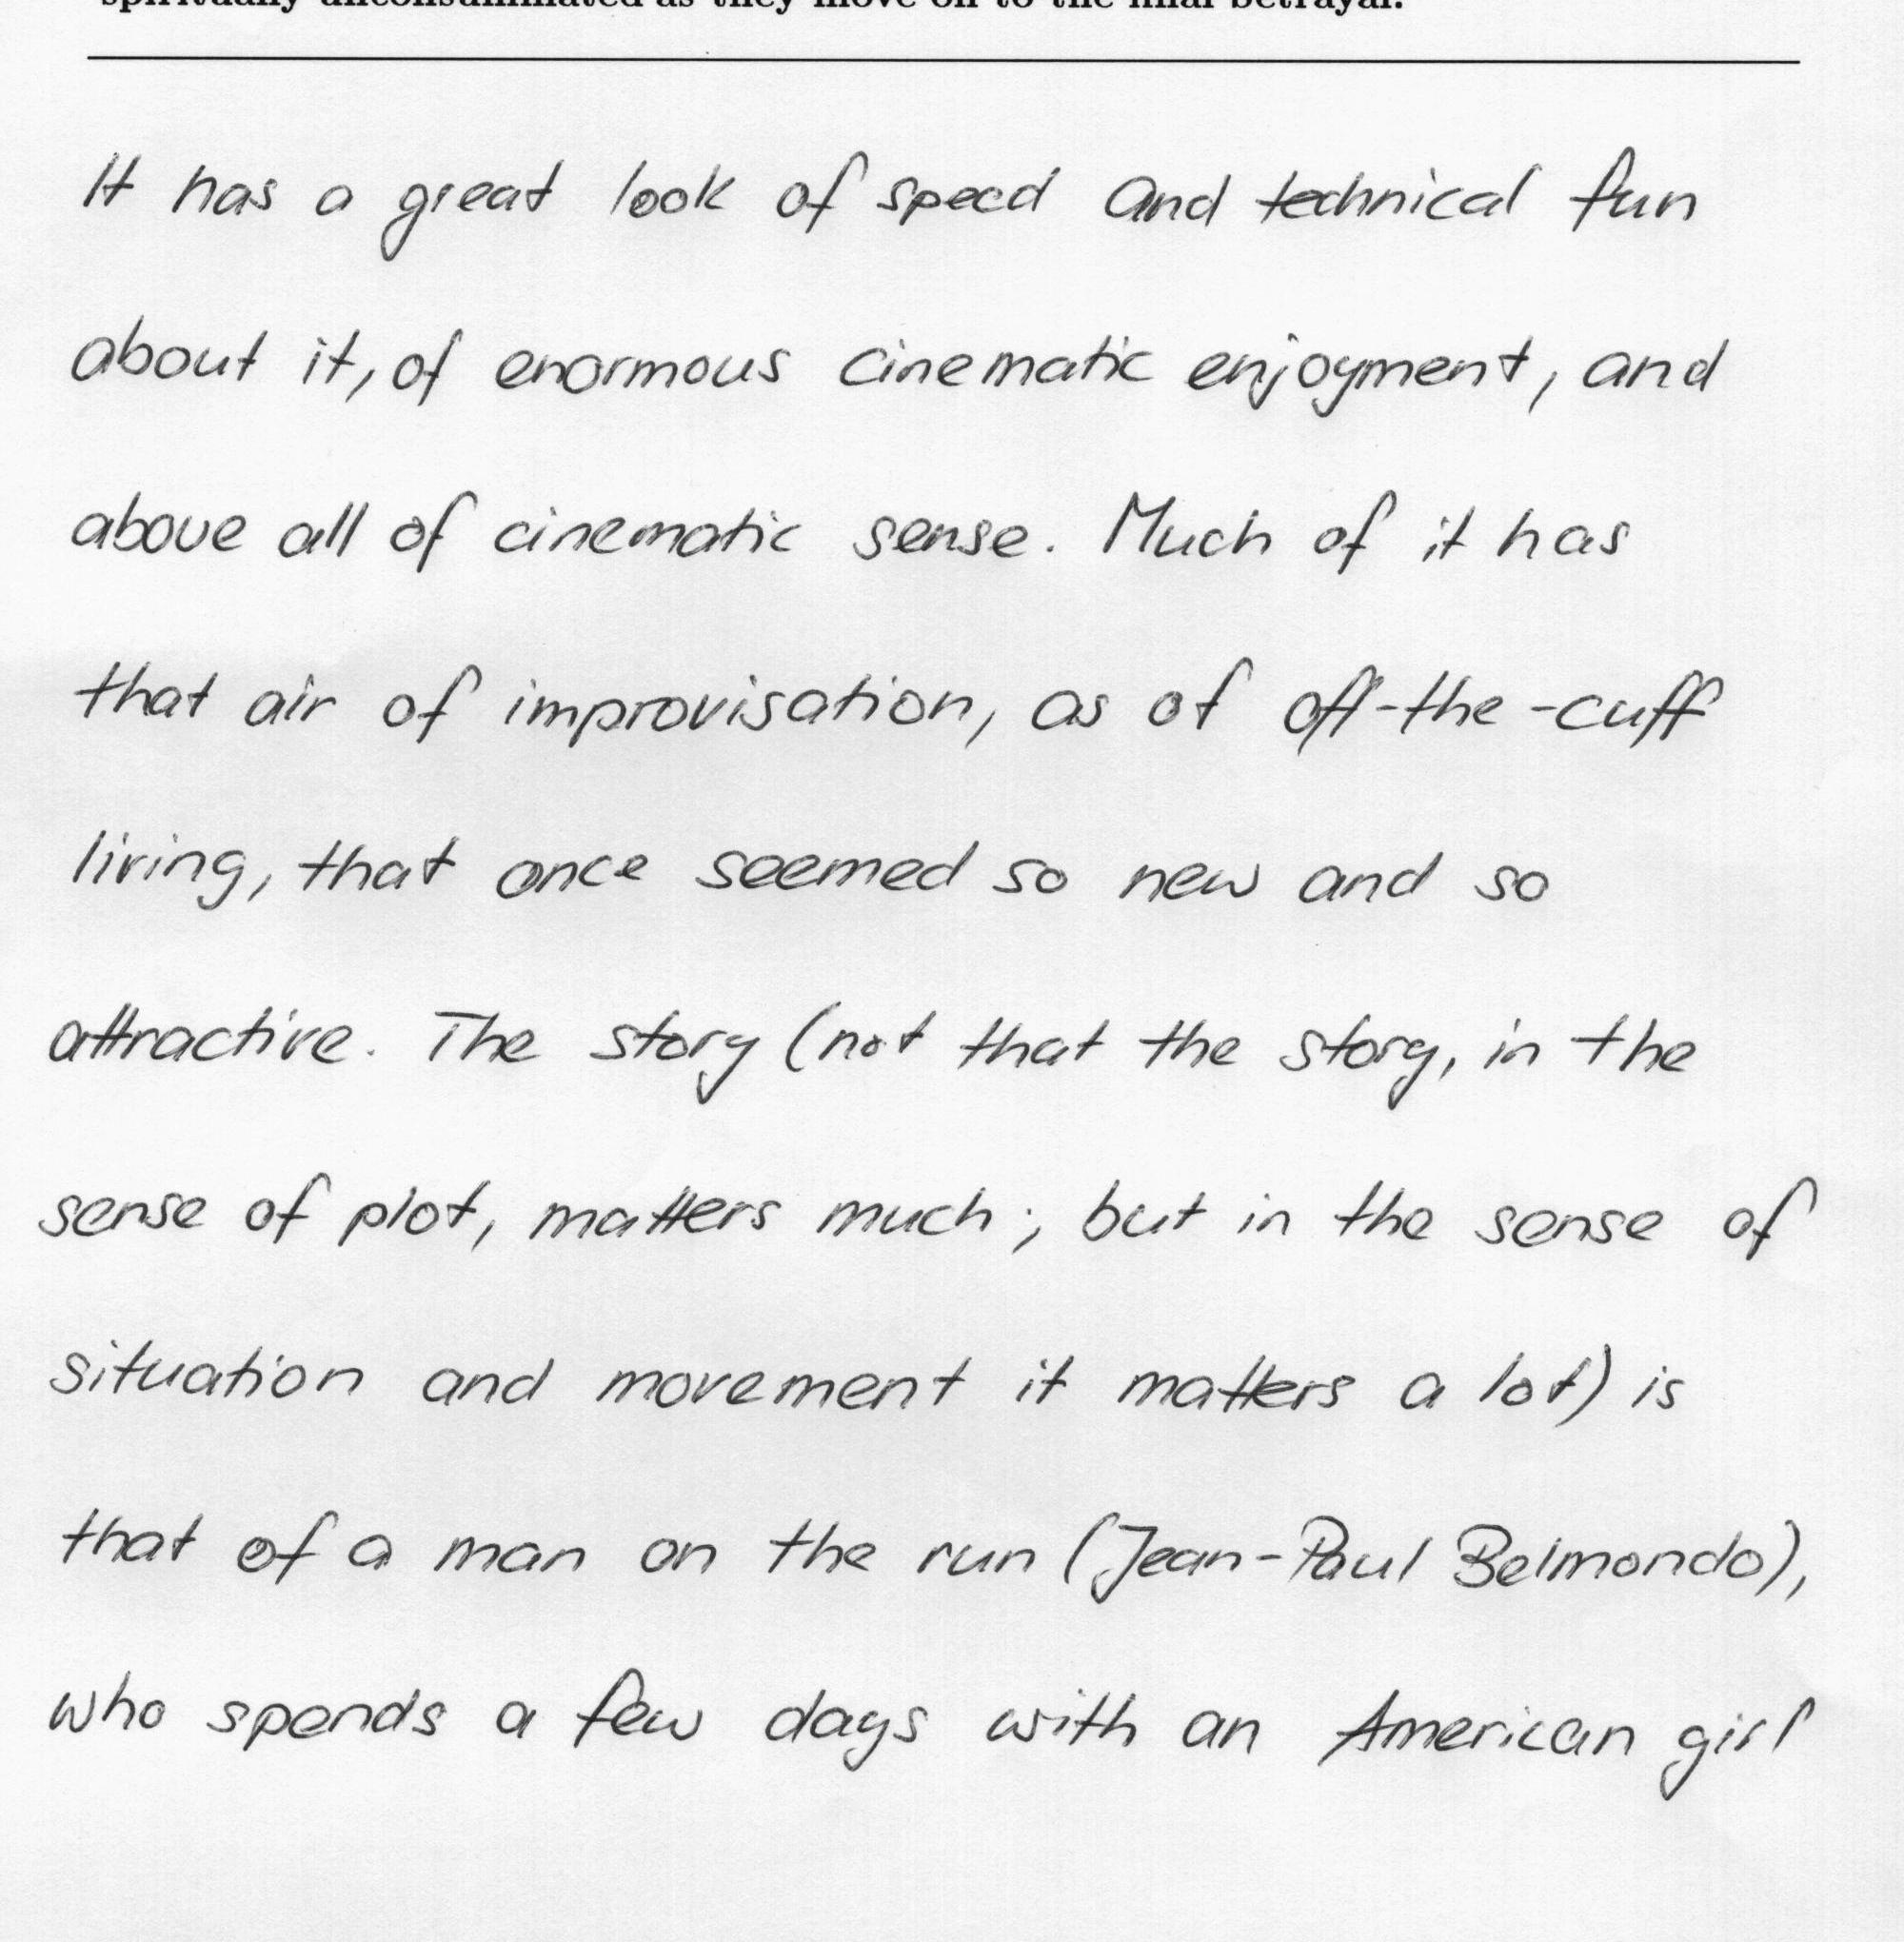 spiritually unconsummated as they move on to the final betrayal.
It has a great look of speed and technical fun
about it, of enormous cinematic enjoyment, and
above all of cinematic sense. Much of it has
that air of improvisation, as of off-the-cuff
living, that once seemed so new and so
attractive. The story (not that the story, in the
sense of plot, matters much; but in the sense of
situation and movement it matters a lot) is
that of a man on the run (Jean-Paul Belmondo),
who spends a few days with an American girl